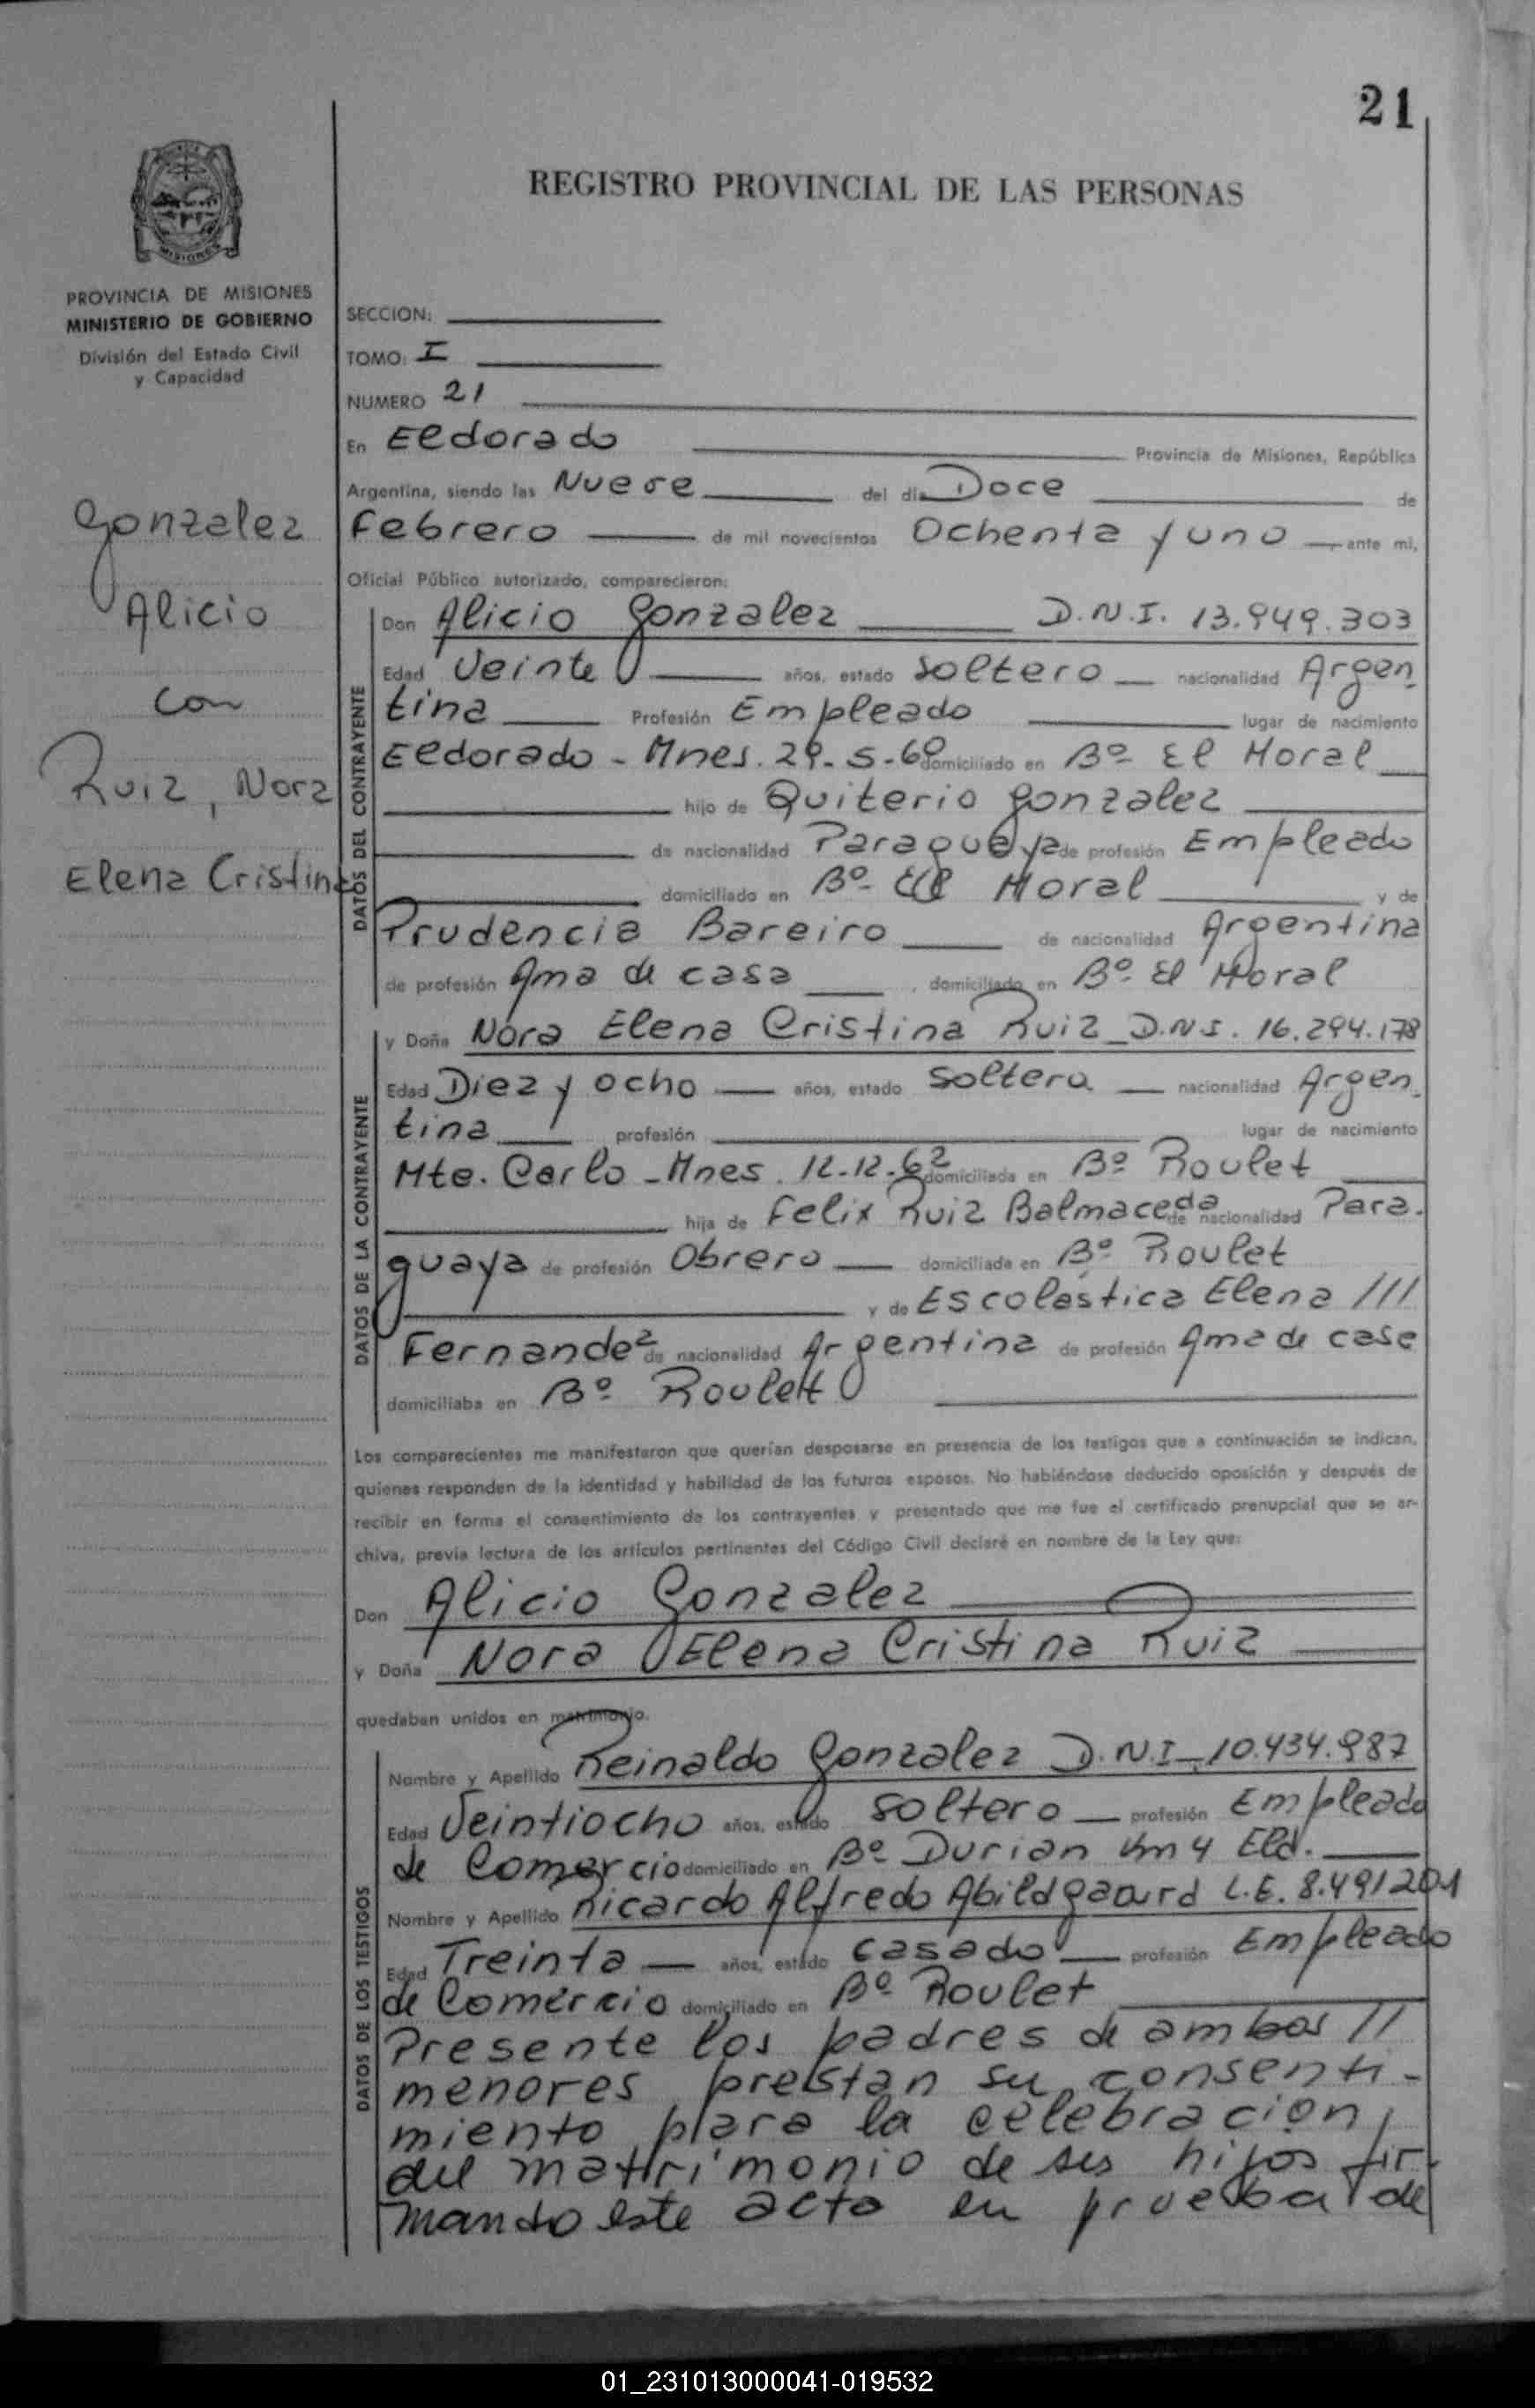 21
REGISTRO PROVINCIAL DE LAS PERSONAS
MISIONES
PROVINCIA DE MISIONES
MINISTERIO DE GOBIERNO
División del Estado Civil
y Capacidad
Gonzalez
Alicio
con
Ruiz, Nora
Elena Cristina
SECCION:
TOMO: I
NUMERO 21
En Eldorado Provincia de Misiones, República
Argentina, siendo las Nueve del día Doce de
Febrero de mil novecientos Ochenta y uno ante mi,
Oficial Público autorizado, comparecieron:
DATOS DEL CONTRAYENTE
Don Alicio Gonzalez D.N.I. 13.949.303
Edad Veinte años, estado soltero nacionalidad Argen
tina Profesión Empleado lugar de nacimiento
Eldorado - Mnes. 29-5-60 domiciliado en Bº El Moral
hijo de Quiterio Gonzalez
de nacionalidad Paraguaya de profesión Empleado
domiciliado en Bº El Moral y de
Prudencia Bareiro de nacionalidad Argentina
de profesión Ama de casa, domiciliada en Bº El Moral
DATOS DE LA CONTRAYENTE
y Doña Nora Elena Cristina Ruiz D.N.I. 16.294.178
Edad Diez y ocho años, estado soltera nacionalidad Argen
tina profesión lugar de nacimiento
Mte. Carlo - Mnes. 12-12-62 domiciliada en Bº Roulet
hija de Felix Ruiz Balmaceda de nacionalidad Para-
guaya de profesión Obrero domiciliada en Bº Roulet
y de Escolastica Elena ///
Fernandez de nacionalidad Argentina de profesión Ama de casa
domiciliaba en Bº Roulett
Los comparecientes me manifestaron que querían desposarse en presencia de los testigos que a continuación se indican,
quienes responden de la identidad y habilidad de los futuros esposos. No habiéndose deducido oposición y después de
recibir en forma el consentimiento de los contrayentes y presentado que me fue el certificado prenupcial que se ar-
chiva, previa lectura de los artículos pertinentes del Código Civil declaré en nombre de la Ley que:
Don Alicio Gonzalez
y Doña Nora Elena Cristina Ruiz
quedaban unidos en matrimonio.
DATOS DE LOS TESTIGOS
Nombre y Apellido Reinaldo Gonzalez D.N.I. 10.434.987
Edad Veintiocho años, estado soltero profesión Empleado
de Comercio domiciliado en Bº Durian Km 4 Eld.
Nombre y Apellido Ricardo Alfredo Abildgaard L.E. 8.491201
Edad Treinta años, estado casado profesión Empleado
de Comercio domiciliado en Bº Roulet
Presente los padres de ambos //
menores prestan su consenti-
miento para la celebracion
del matrimonio de sus hijos fir-
mando este acto en prueba de
01_231013000041-019532